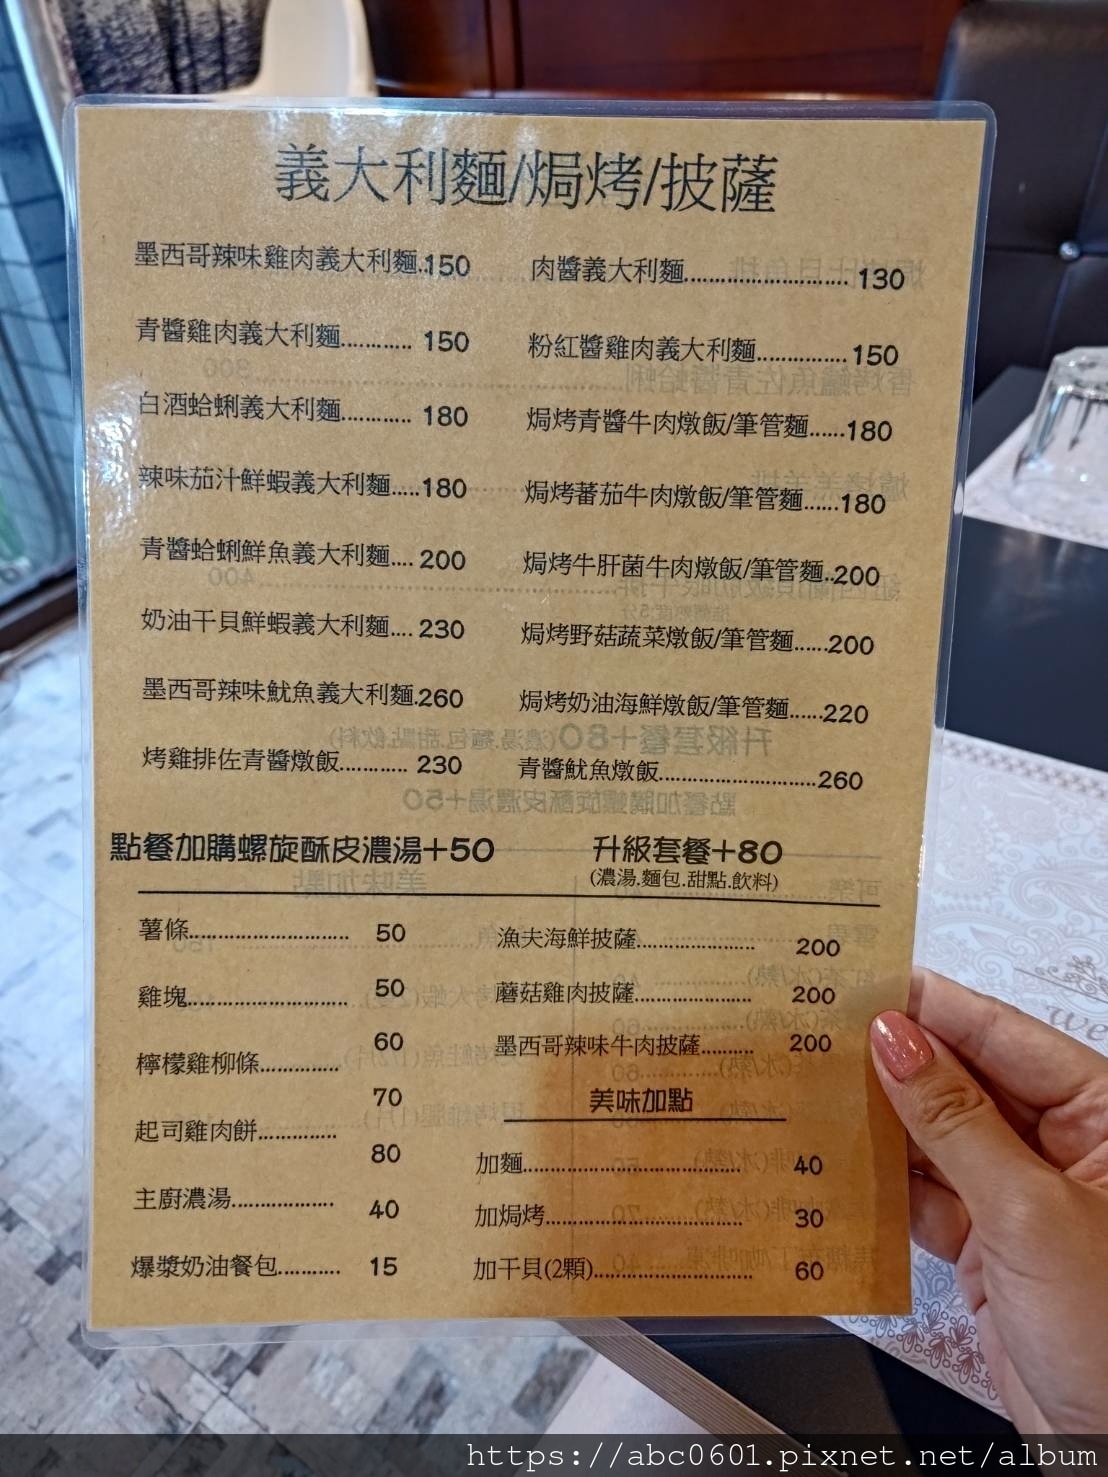 義大利麵/焗烤/披薩
墨西哥辣味雞肉義大利麵..150
青醬雞肉義大利麵............ 150
白酒蛤蜊義大利麵............ 180
辣味茄汁鮮蝦義大利麵.....180
青醬蛤蜊鮮魚義大利麵.... 200
奶油干貝鮮蝦義大利麵.... 230
墨西哥辣味魷魚義大利麵.260
烤雞排佐青醬燉飯............ 230
肉醬義大利麵............................ 130
粉紅醬雞肉義大利麵............... 150
焗烤青醬牛肉燉飯/筆管麵......180
焗烤蕃茄牛肉燉飯/筆管麵......180
焗烤牛肝菌牛肉燉飯/筆管麵..200
焗烤野菇蔬菜燉飯/筆管麵......200
焗烤奶油海鮮燉飯/筆管麵......220
青醬魷魚燉飯...........................260
點餐加購螺旋酥皮濃湯+50
升級套餐+80
(濃湯.麵包.甜點.飲料)
薯條........................... 50
雞塊........................... 50
60
檸檬雞柳條..............
70
起司雞肉餅..............
80
主廚濃湯.................. 40
爆漿奶油餐包........... 15
漁夫海鮮披薩..................... 200
蘑菇雞肉披薩..................... 200
墨西哥辣味牛肉披薩.......... 200
美味加點
加麵...................................... 40
加焗烤.................................. 30
加干貝(2顆)........................... 60
https://abc0601.pixnet.net/album